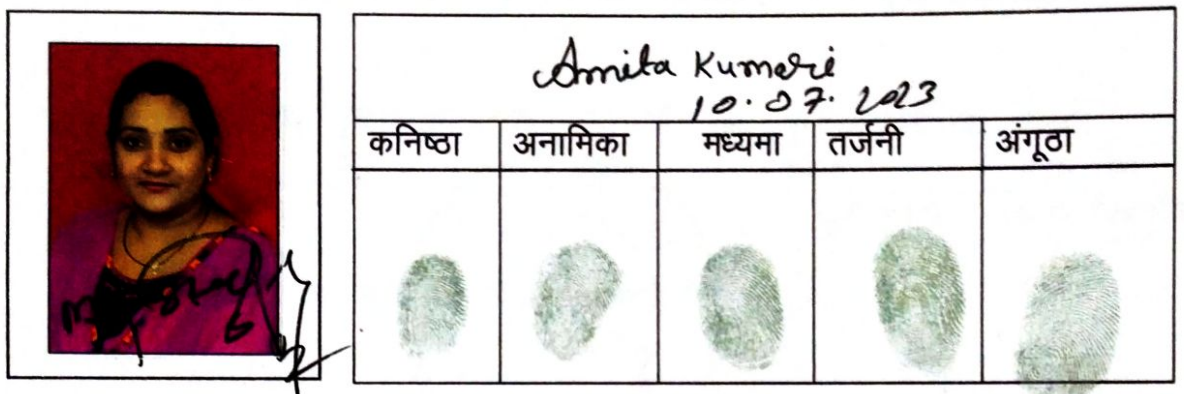 Amita Kumari
10.07.2023
कनिष्ठा अनामिका मध्यमा तर्जनी अंगूठा